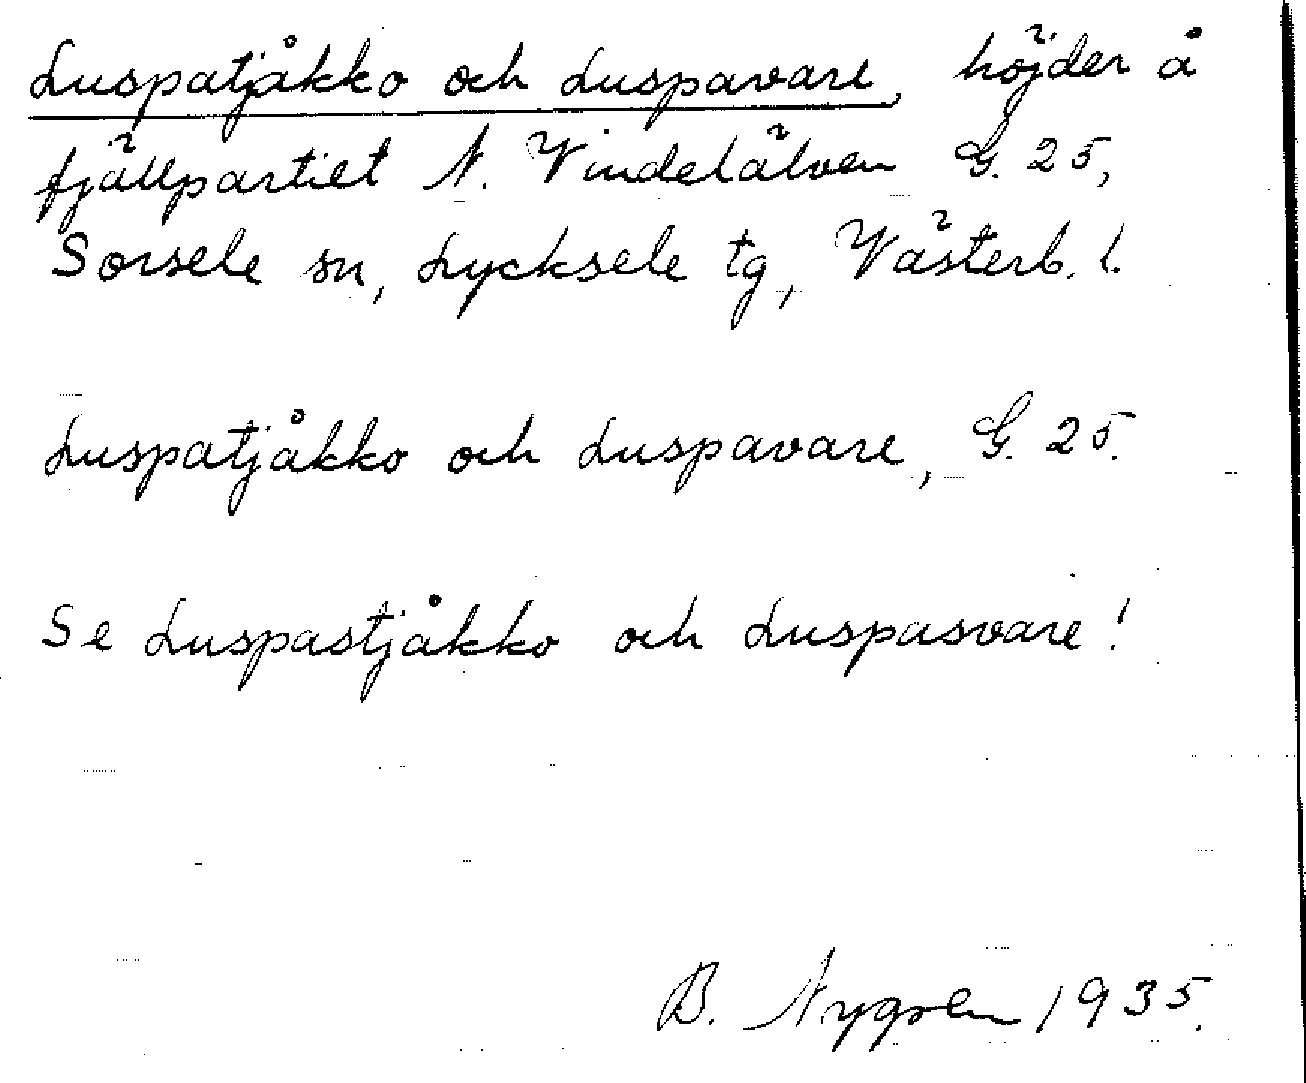 Luspatjåkko och Luspavare, höjder å
fjällpartiet N. Vindelälven G. 25,
Sorsele sn, Lycksele tg, Västerb. l.
Luspatjåkko och Luspavare, G. 25.
Se Luspastjåkko och Luspasvare!
B. Nygren 1935.